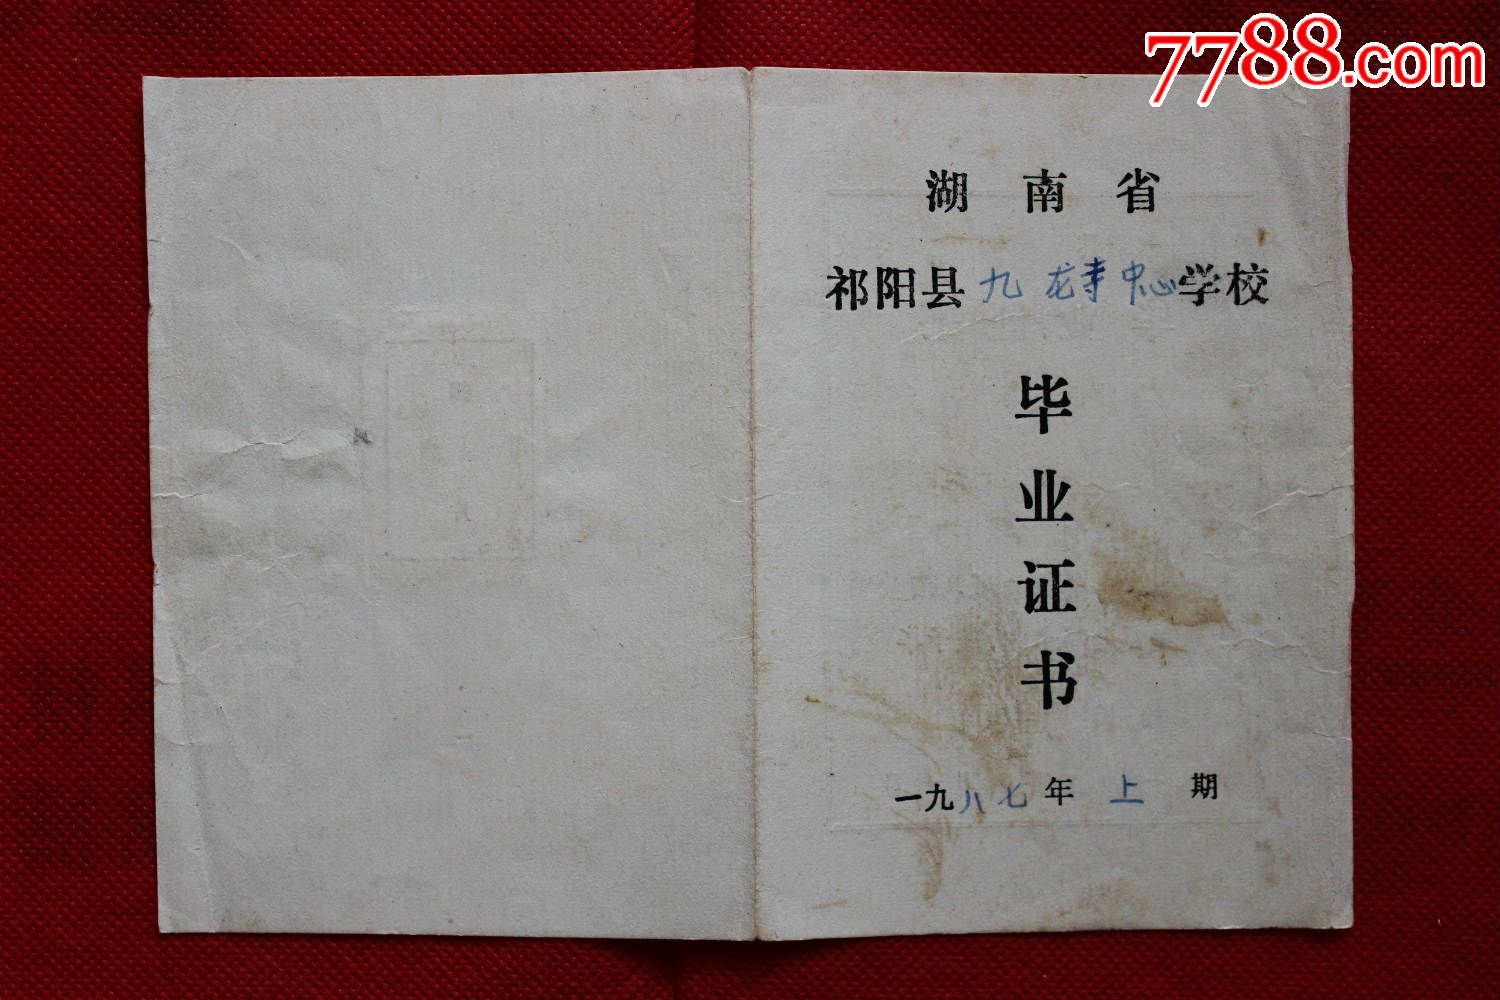 7788.com
湖南省
祁阳县九龙寺中心学校
毕
业
证
书
一九八七年上期